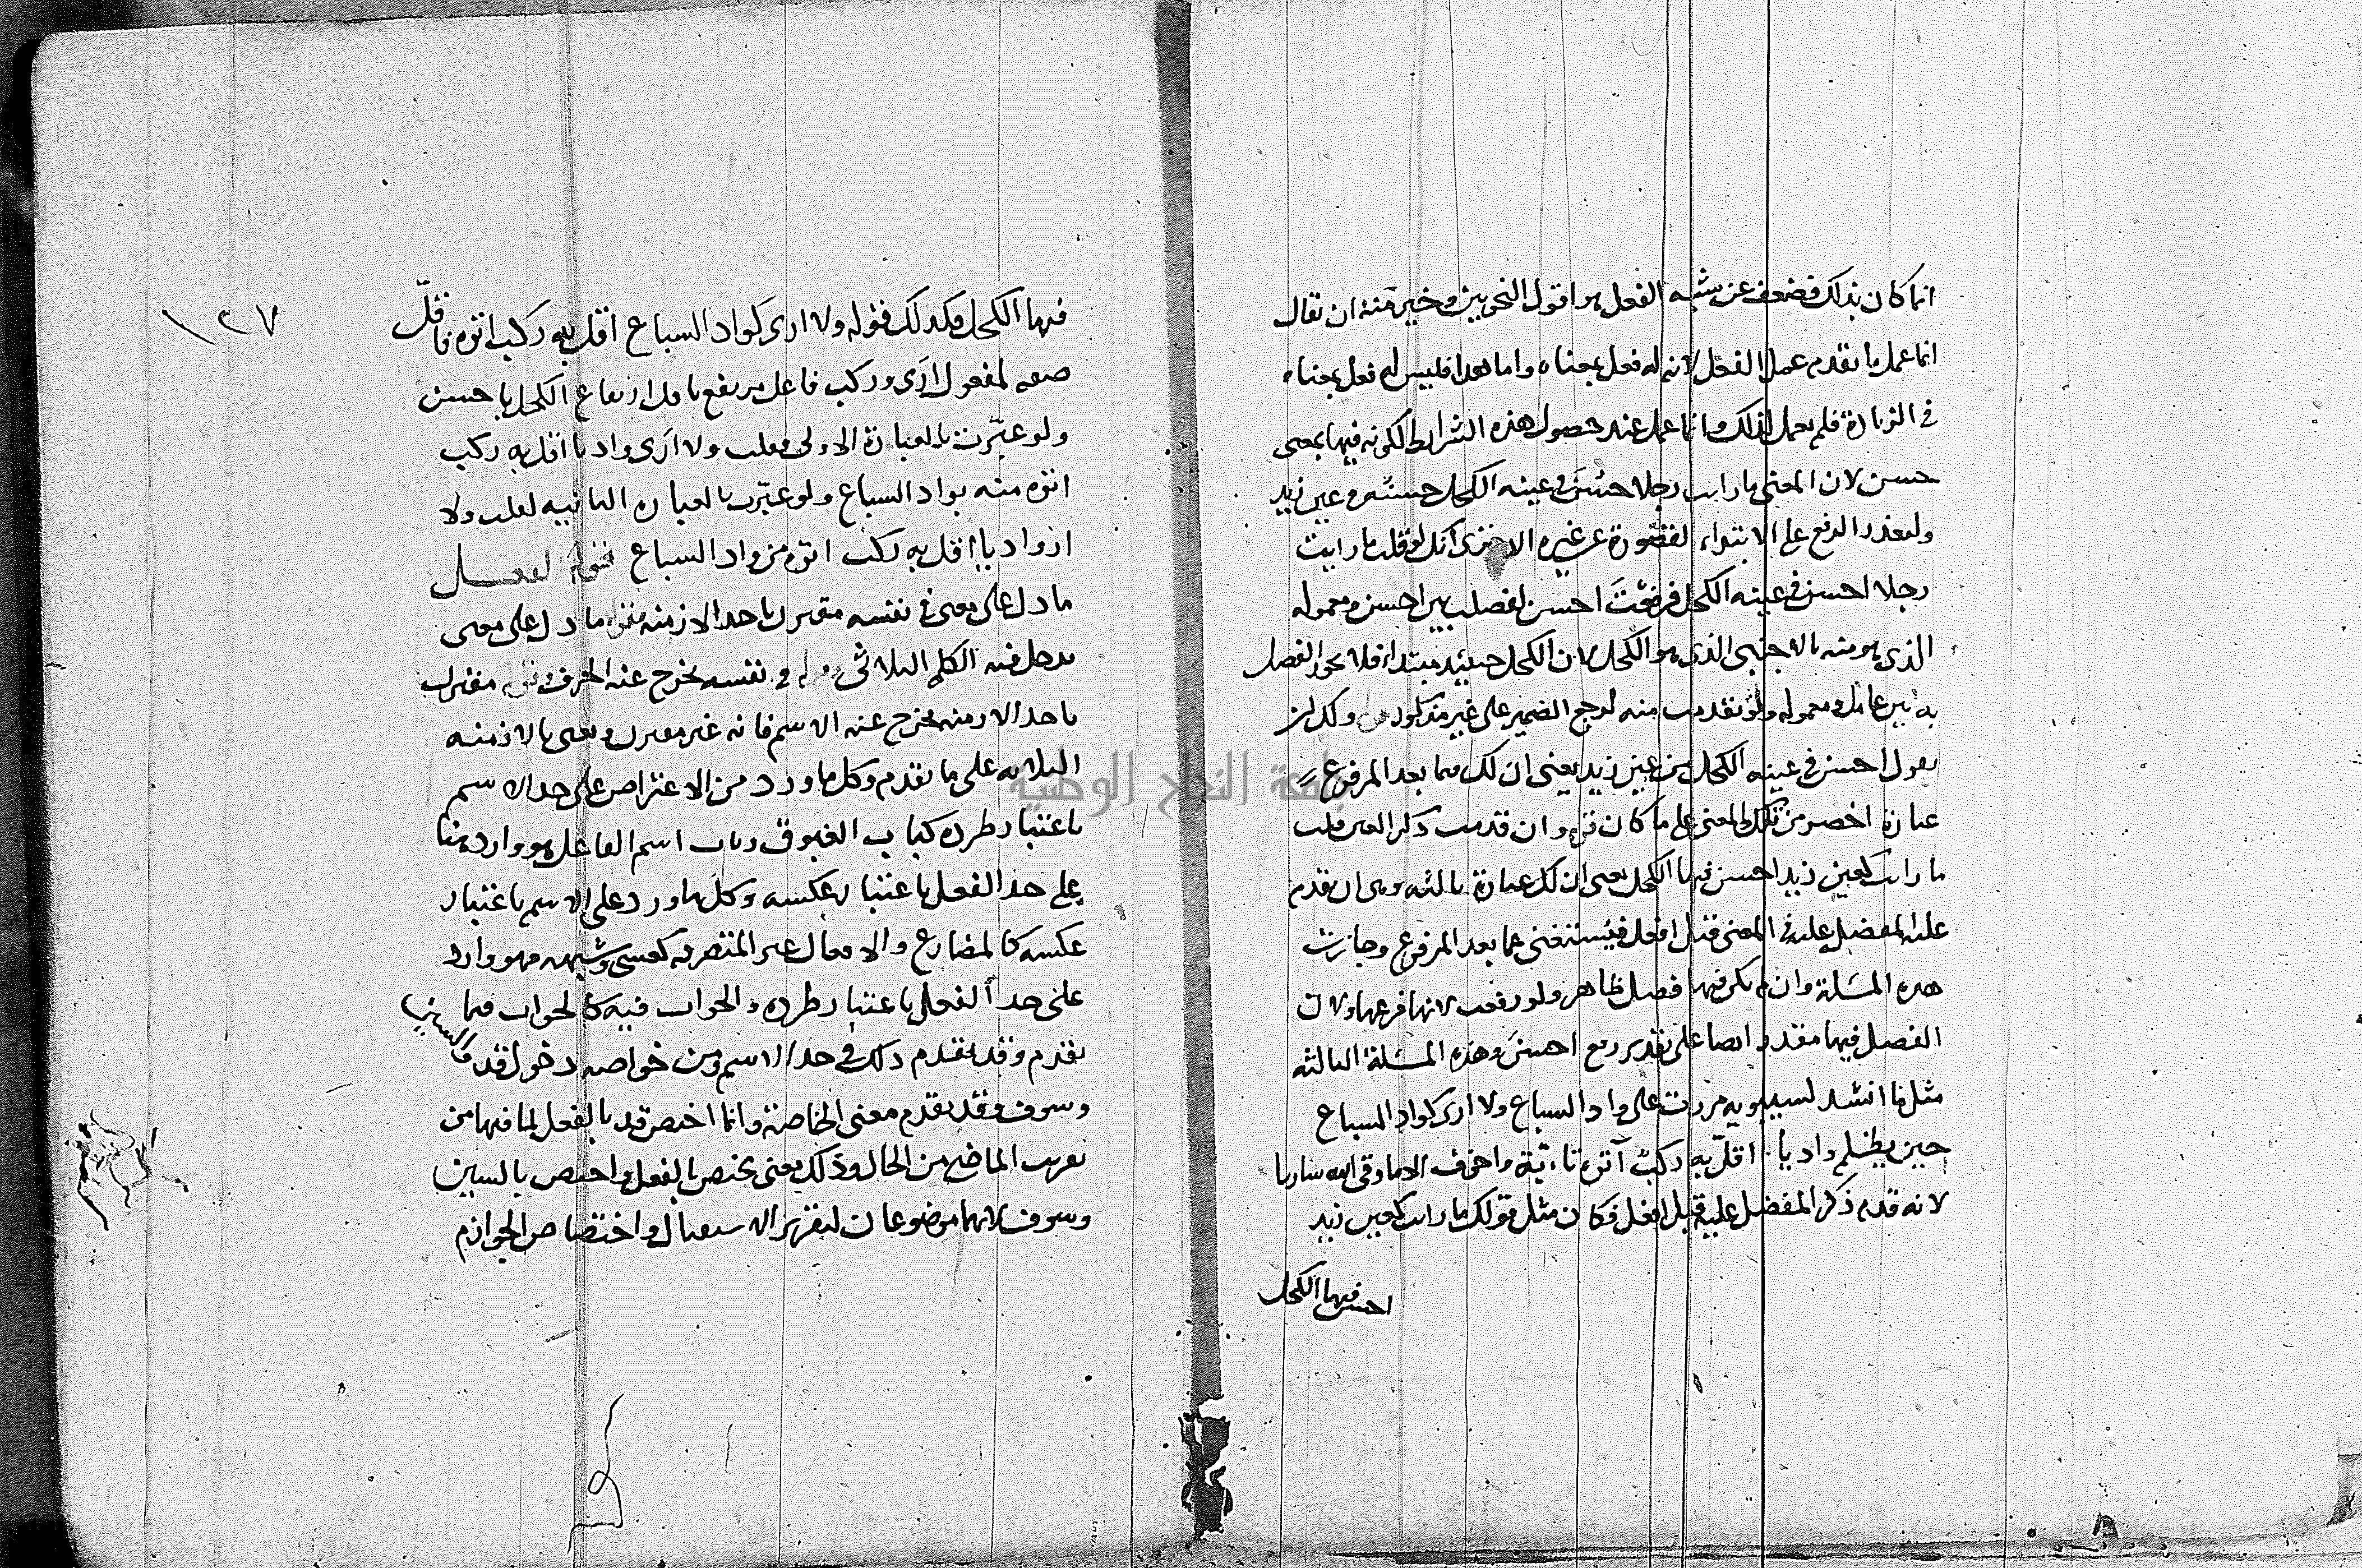 انما كان بذلك فضعف عن شبه الفعل هذا قول النحويين وخير منه ان يقال
انما عمل ما تقدم عمل الفعل لانه له فعل بمعناه واما هذا فليس له فعل بمعناه
في الزيادة فلم يعمل لذلك وانما عمل عند حصول هذه الشرايط لكونه فيها بمعنى
حسن لان المعنى ما رايت رجلا حسُنَ في عينه الكحل حسنَه في عين زيد
ولتعذر الرفع على الابتداء لفصوره عن غيره الا ترى انك لو قلت ما رايت
رجلا احسن في عينه الكحل فرفعتَ احسن لفصلت بين احسن ومعموله
الذي هو منه بالاجنبي الذي هو الكحل لان الكحل حينئذ مبتدا فلا يجوز الفصل
به بين عامل ومعموله ولو تقدمت منه لرجع الضمير على غير مذكور ولك ان
تقول احسن في عينه الكحل من عين زيد يعني ان لك فيما بعد المرفوع
عبارة اخصر من تلك والمعنى على ما كان وان قدمت ذكر العين قلت
ما رايت كعين زيد احسن فيها الكحل يعني ان لك عبارة ثالثة وهي ان تقدم
عليه المفضل عليه في المعنى قبل افعل فيُستغنى عما بعد المرفوع وجازت
هذه المسَلة وان لم يكن فيها فصل ظاهر ولو رفعت لانها فرعها ولان
الفصل فيها مقدر ايضا على تقدير رفع احسنَ وهذه المسَلة الثالثه
مثل ما انشد لسيبويه مررت على واد السباع ولا ارى كواد السباع
حين يظلم واديا اقلّ به ركبٌ أتوه تائيّة واخوف الا ما وقى الله ساريا
لانه قدم ذكر المفضل عليه قبل افعل فكان مثل قولك ما رايت كعين زيد
احسن فيها الكحل
١٢٧
فيها الكحل وكذلك قوله ولا ارى كواد السباع اقل به ركب اتوه فاقلّ
صفه لمفعول ارَى وركب فاعل مرتفع باقل ارتفاع الكحل باحسن
ولو عبّرت بالعبارة الاولى لقلت ولا ارَى واديا اقل به ركب
اتوه منه بواد السباع ولو عبّرت بالعبارة الثانيه لقلت ولا
ارى واديا اقل به ركب اتوه من واد السباع قوله الفعل
ما دل على معنى في نفسه مقترن باحد الازمنه قوله ما دل على معنى
يدخل فيه الكلم الثلاثى قوله في نفسه يخرج عنه الحرف وقوله مقترن
باحد الازمنه يخرج عنه الاسم فانه غير مقترن ونعني بالازمنه
الثلاثه على ما تقدم وكل ما ورد من الاعتراض على حد الاسم
باعتبار طرده كباب الغبوق وباب اسم الفاعل هو وارد هنا
على حد الفعل باعتبار عكسه وكل ما ورد على الاسم باعتبار
عكسه كالمضارع والافعال غير المتصرفه كعسى وشبهه فهو وارد
على حد الفعل باعتبار طرده والجواب فيه كالجواب فيما
تقدم وقد تقدم ذلك في حد الاسم ومن خواصه دخول قد والسين
وسوف وقد تقدم معنى الخاصة وانما اختص قد بالفعل لما فيها من
تقريب الماضي من الحال وذلك معنى يختص بالفعل واختص بالسين
وسوف لانهما موضوعان لتقرير الاستقبال واختصاص الجوازم
جامعة النجاح الوطنية